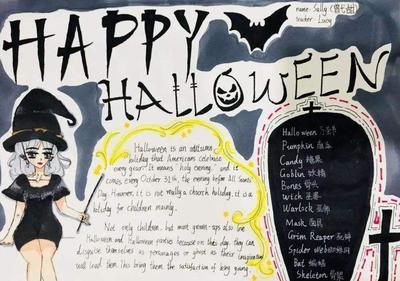 HAPPY
HALLOWEEN
name: Sally
teacher: Lucy
Halloween is an autumn
holiday that Americans celebrate
every year. It means "holy evening," and it
comes every October 31th, the evening before All Saints
Day. However, it is not really a church holiday, it is a
holiday for children mainly.
Not only children, but most grown-ups also love
Halloween and Halloween parties because on this day, they can
disguise themselves as personages or ghost as their imaginations
will lead them. This bring them the satisfaction of being young.
Halloween 万圣节
Pumpkin 南瓜
Candy 糖果
Goblin 妖精
Bones 骨头
Witch 巫婆
Warlock 巫师
Mask 面具
Grim Reaper 死神
Spider web 蜘蛛网
Bat 蝙蝠
Skeleton 骨架